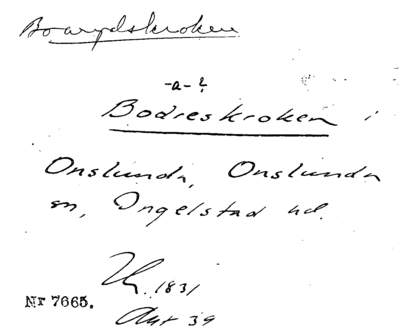 Boarydskroken
-a-?
Bodreskroken i
Onslunda, Onslunda
sn, Ingelstad hd.
1831
Nr 7665.
Akt 39